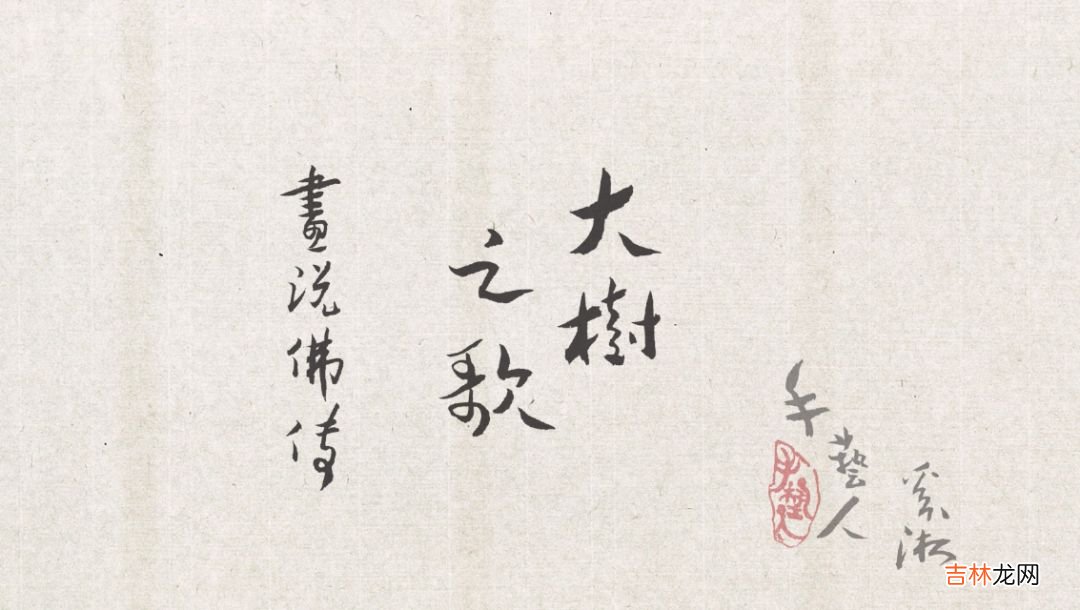 大樹
之歌
畫說佛傳
手藝人
奚淞
吉林龙网